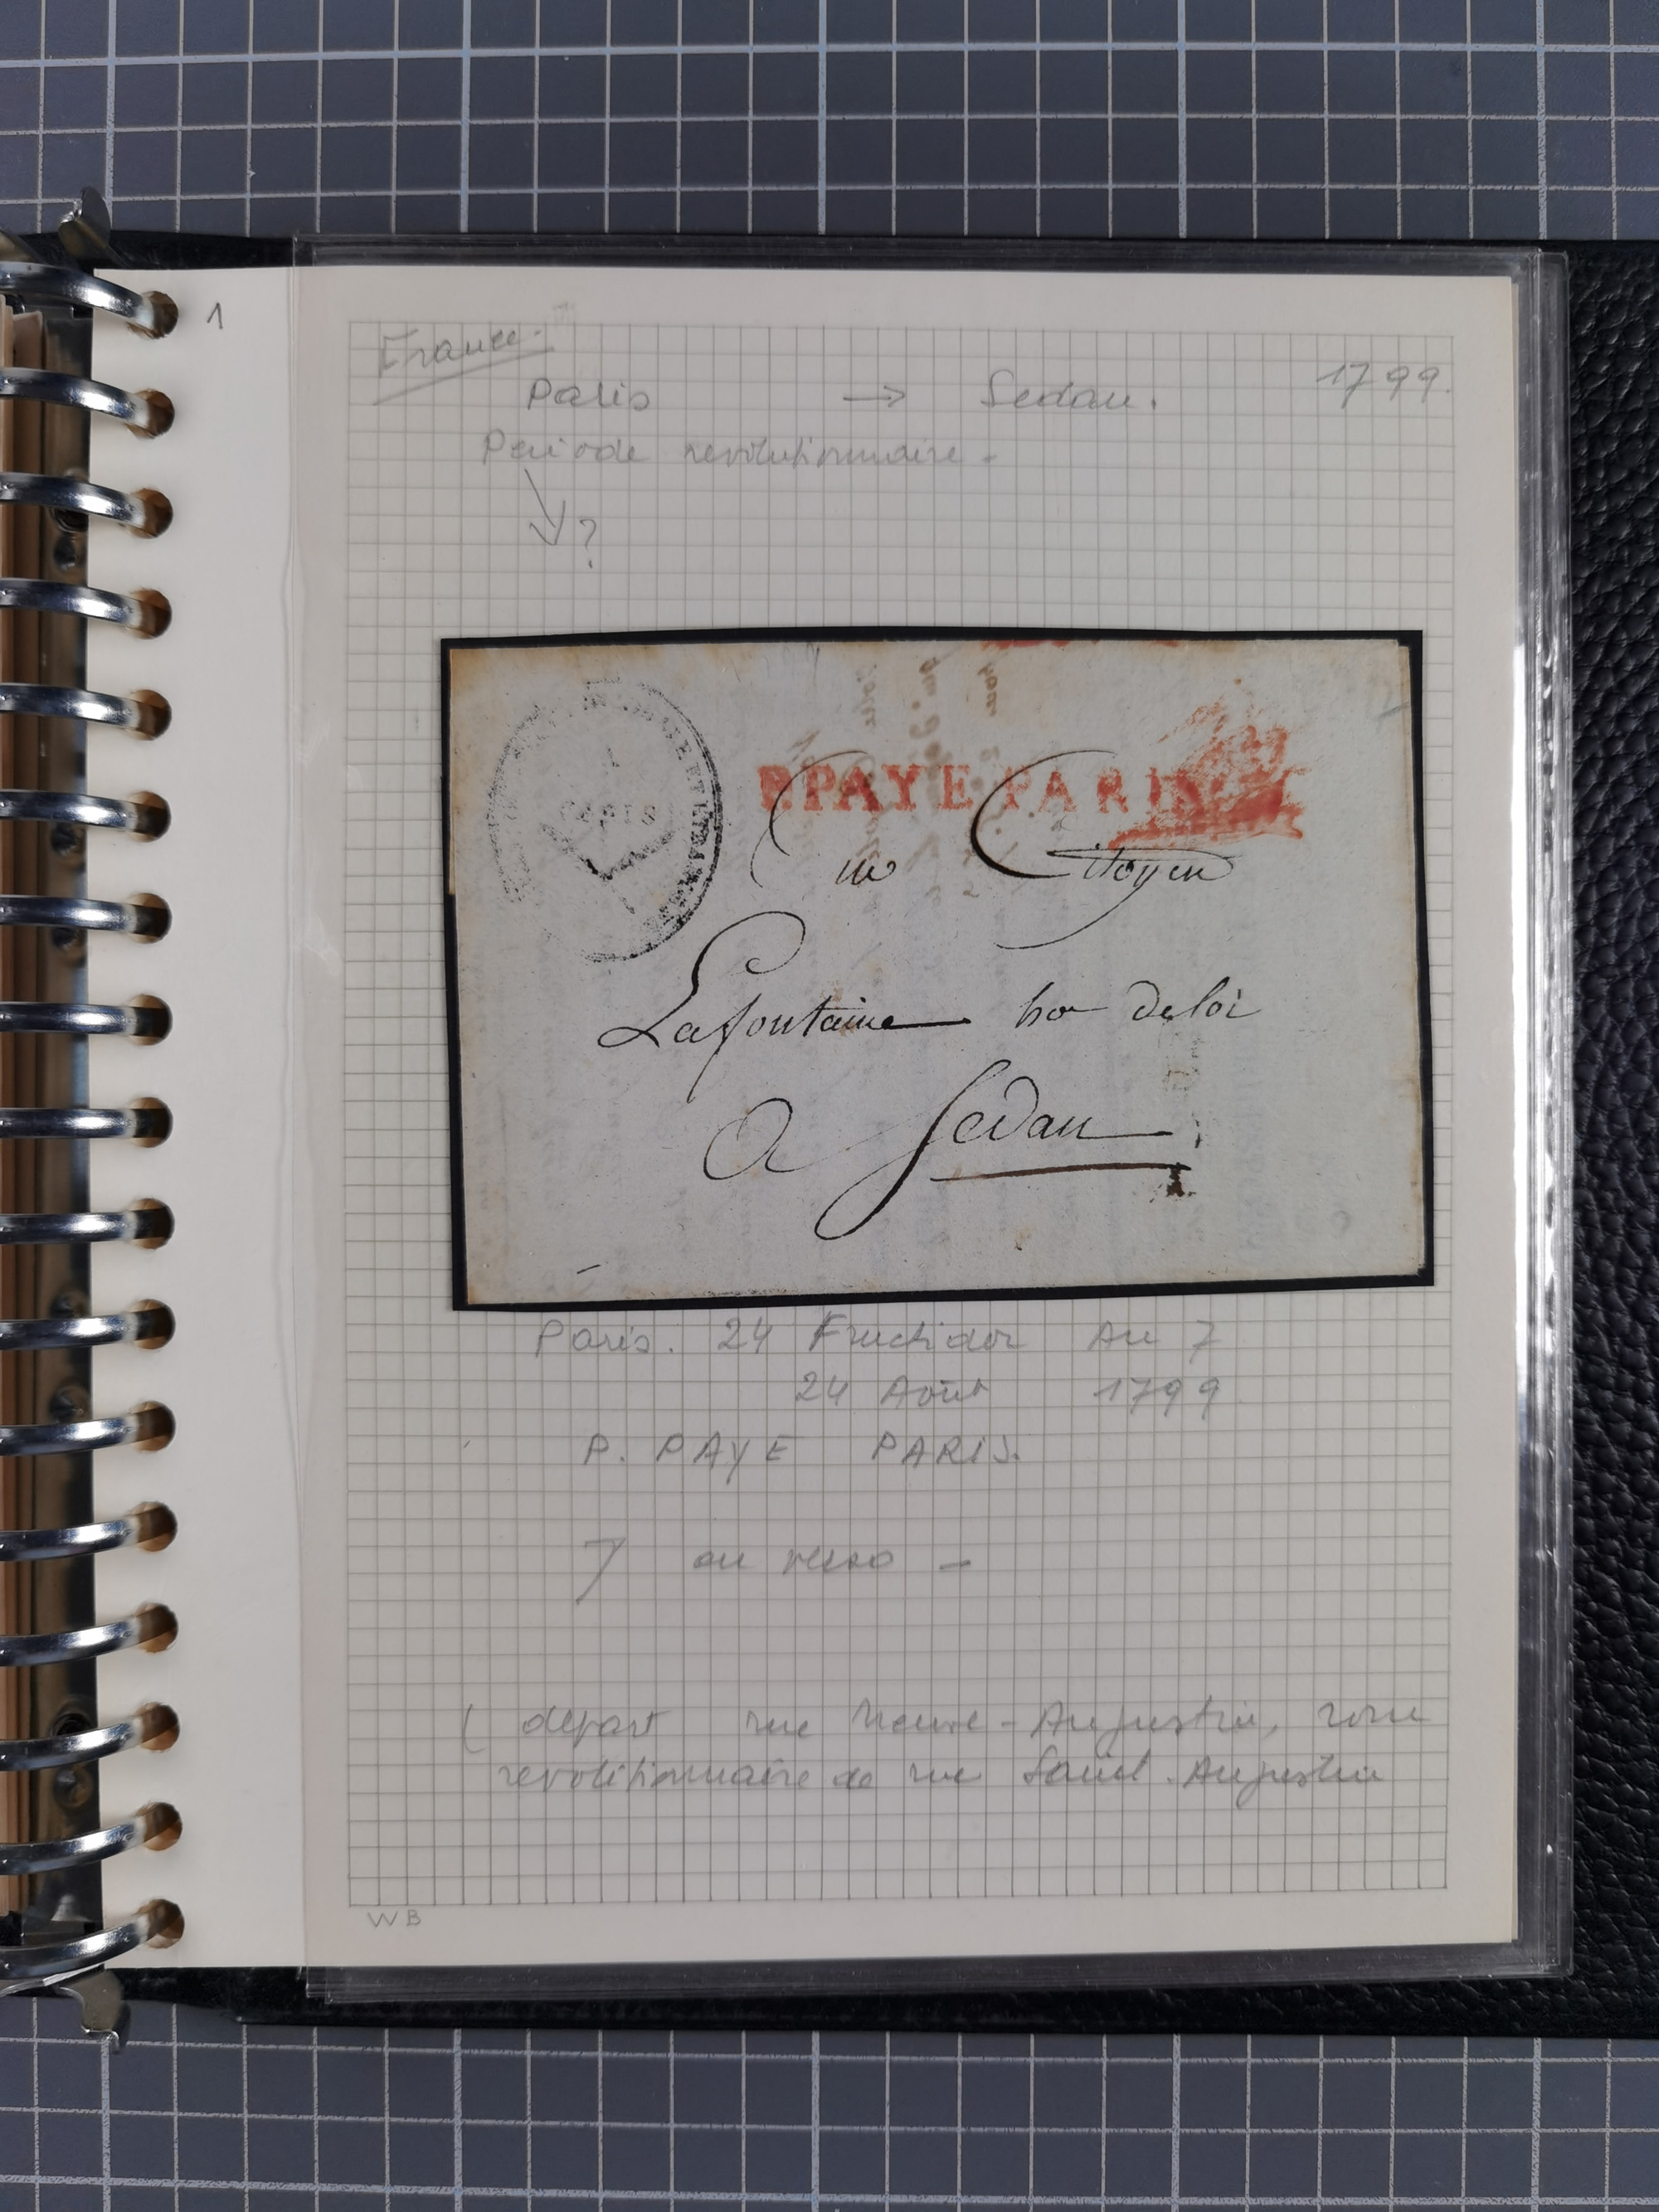 1
France.
Paris → Sedan. 1799.
Période revolutionnaire -
?
PARIS
P.PAYE PARIS
au Citoyen
Lafontaine ho deloi
a Sedan
Paris. 24 Fructidor An 7
24 Août 1799
P. PAYE PARIS.
7 au verso -
( départ rue Neuve - Augustin, nom
revolutionnaire de rue Saint. Augustin
WB